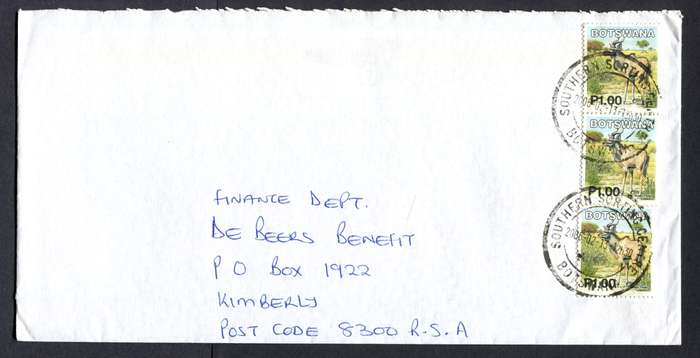 BOTSWANA
P1.00
BOTSWANA
P1.00
BOTSWANA
P1.00
SOUTHERN SORTING
BOTSWANA
SOUTHERN SORTING CENTRE
BOTSWANA
FINANCE DEPT.
DE BEERS BENEFIT
P O BOX 1922
KIMBERLY
POST CODE 8300 R.S.A